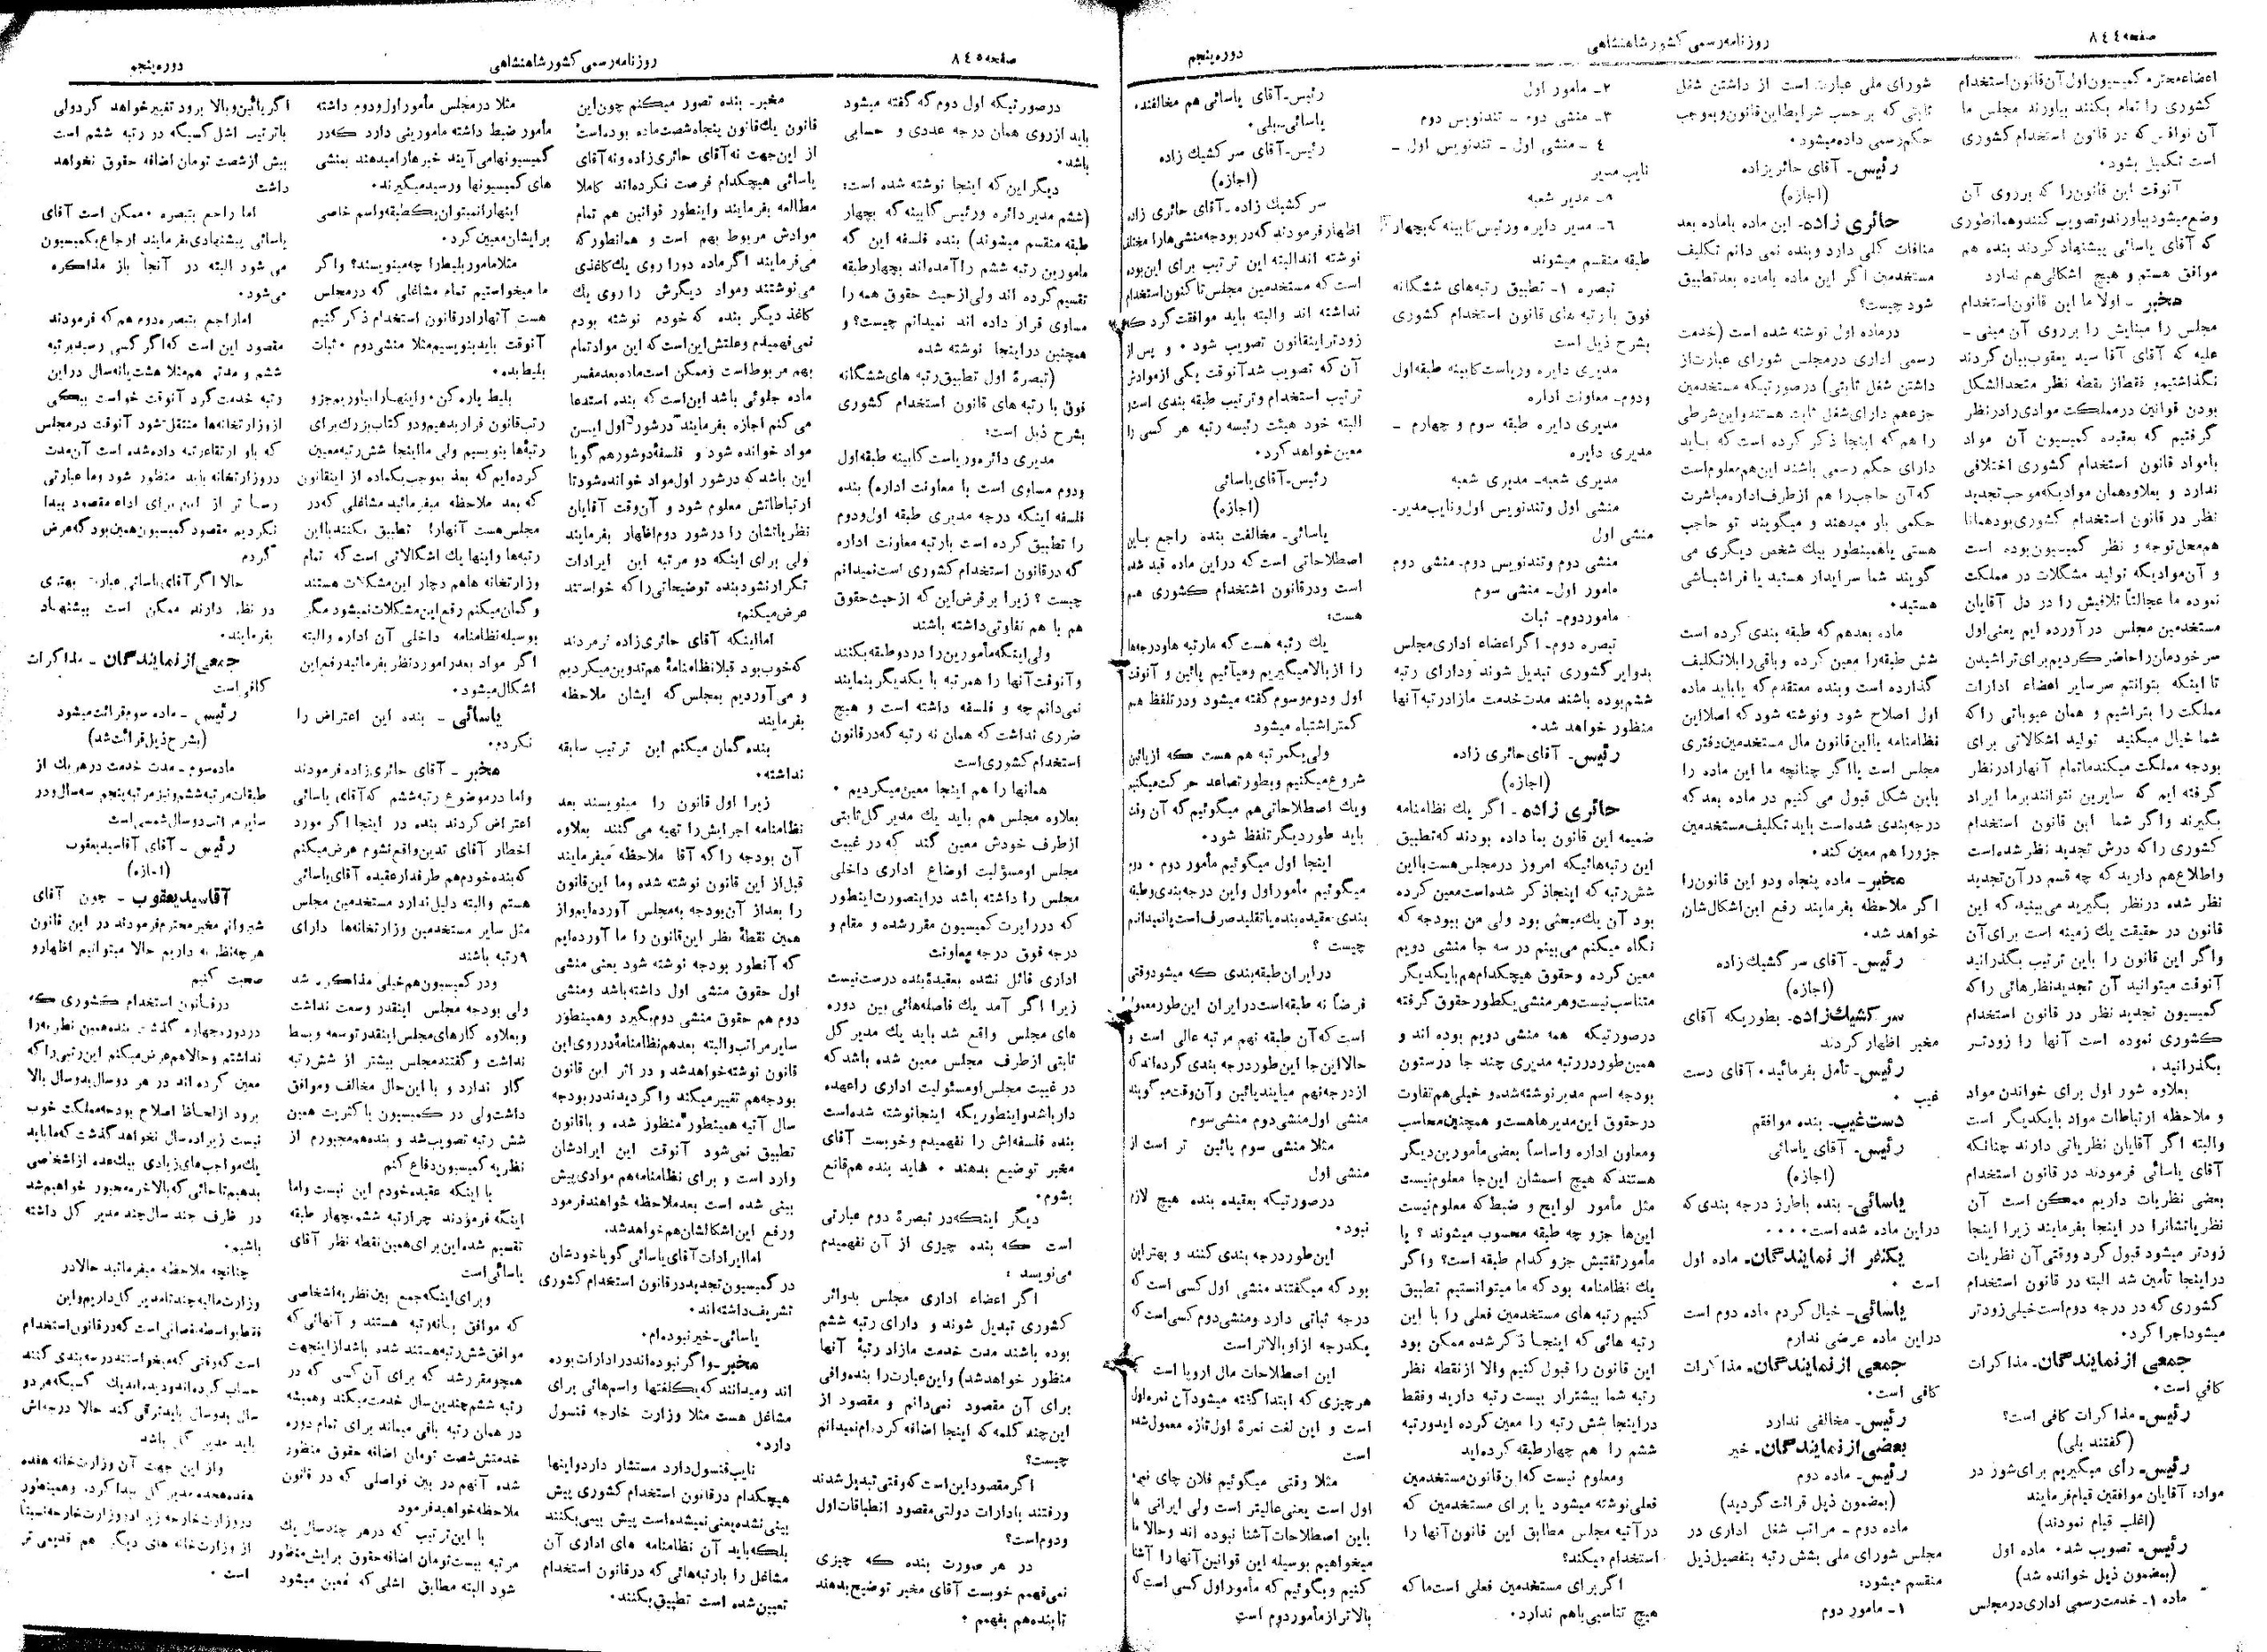 صفحه ۸٤٤
روزنامه رسمی کشور شاهنشاهی
دوره پنجم
اعضاء محترم کمیسیون اول آن قانون استخدام
کشوری را تمام بکنند بیاورند مجلس ما
آن نواقص که در قانون استخدام کشوری
است تکمیل بشود.
آنوقت این قانون را که بر روی آن
وضع میشود بیاورند و تصویب کنند و همانطوری
که آقای یاسائی پیشنهاد کردند بنده هم
موافق هستم و هیچ اشکالی هم ندارد
مخبر - اولا ما این قانون استخدام
مجلس را مبنایش را بر روی آن مبنی -
علیه که آقای آقا سید یعقوب بیان کردند
نگذاشتیم و فقط از نقطه نظر متحدالشکل
بودن قوانین در مملکت موادی را در نظر
گرفتیم که بعقیده کمیسیون آن مواد
با مواد قانون استخدام کشوری اختلافی
ندارد و بعلاوه همان موادیکه موجب تجدید
نظر در قانون استخدام کشوری بود همانا
هم محل توجه و نظر کمیسیون بوده است
و آن موادیکه تولید مشکلات در مملکت
نموده ما عجالتاً تلافیش را در دل آقایان
مستخدمین مجلس در آورده ایم یعنی اول
سر خودمان را حاضر کردیم برای تراشیدن
تا اینکه بتوانتم سر سایر اعضاء ادارات
مملکت را بتراشیم و همان عیوباتی را که
شما خیال میکنید تولید اشکالاتی برای
بودجه مملکت میکند ما تمام آنها را در نظر
گرفته ایم که سایرین نتوانند بر ما ایراد
بگیرند و اگر شما این قانون استخدام
کشوری را که درش تجدید نظر شده است
و اطلاع هم دارید که چه قسم در آن تجدید
نظر شده در نظر بگیرید می بینید که این
قانون در حقیقت یك زمینه است برای آن
و اگر این قانون را باین ترتیب بگذرانید
آنوقت میتوانید آن تجدید نظرهائی را که
کمیسیون تجدید نظر در قانون استخدام
کشوری نموده است آنها را زودتر
بگذرانید.
بعلاوه شور اول برای خواندن مواد
و ملاحظه ارتباطات مواد بایکدیگر است
والبته اگر آقایان نظریاتی دارند چنانکه
آقای یاسائی فرمودند در قانون استخدام
بعضی نظریات داریم ممکن است آن
نظریاتشانرا در اینجا بفرمایند زیرا اینجا
زودتر میشود قبول کرد و وقتی آن نظریات
در اینجا تأمین شد البته در قانون استخدام
کشوری که در درجه دوم است خیلی زودتر
میشود اجرا کرد.
جمعی از نمایندگان - مذاکرات
کافی است.
رئیس - مذاکرات کافی است؟
(گفتند بلی)
رئیس - رأی میگیریم برای شور در
مواد: آقایان موافقین قیام فرمایند
(اغلب قیام نمودند)
رئیس - تصویب شد. ماده اول
(بمضمون ذیل خوانده شد)
ماده ۱ - خدمت رسمی اداری در مجلس
شورای ملی عبارت است از داشتن شغل
ثابتی که بر حسب شرایط این قانون و بموجب
حکم رسمی داده میشود.
رئیس - آقای حائریزاده
(اجازه)
حائری زاده - این ماده با ماده بعد
منافات کلی دارد و بنده نمی دانم تکلیف
مستخدمین اگر این ماده با ماده بعد تطبیق
شود چیست؟
در ماده اول نوشته شده است (خدمت
رسمی اداری در مجلس شورای عبارت از
داشتن شغل ثابتی) در صورتیکه مستخدمین
جزء هم دارای شغل ثابت هستند و این شرطی
را هم که اینجا ذکر کرده است که باید
دارای حکم رسمی باشند این هم معلوم است
که آن حاجب را هم از طرف اداره مباشرت
حکمی باو میدهند و میگویند تو حاجب
هستی یا همینطور بیك شخص دیگری می
گویند شما سرایدار هستید یا فراشباشی
هستید.
ماده بعد هم که طبقه بندی کرده است
شش طبقه را معین کرده و باقی را بلا تکلیف
گذارده است و بنده معتقدم که یا باید ماده
اول اصلاح شود و نوشته شود که اصلا این
نظامنامه یا این قانون مال مستخدمین دفتری
مجلس است یا اگر چنانچه ما این ماده را
باین شکل قبول می کنیم در ماده بعد که
درجه بندی شده است باید تکلیف مستخدمین
جزو را هم معین کند.
مخبر - ماده پنجاه و دو این قانون را
اگر ملاحظه بفرمایند رفع این اشکال شان
خواهد شد.
رئیس - آقای سر کشیك زاده
(اجازه)
سر کشیك زاده - بطوریکه آقای
مخبر اظهار کردند
رئیس - تأمل بفرمائید. آقای دست
غیب.
دست غیب - بنده موافقم
رئیس - آقای یاسائی
(اجازه)
یاسائی - بنده با طرز درجه بندی که
در این ماده شده است....
یکنفر از نمایندگان - ماده اول
است.
یاسائی - خیال کردم ماده دوم است
در این ماده عرضی ندارم
جمعی از نمایندگان - مذاکرات
کافی است.
رئیس - مخالفی ندارد
بعضی از نمایندگان - خیر
رئیس - ماده دوم
(بمضمون ذیل قرائت گردید)
ماده دوم - مراتب شغل اداری در
مجلس شورای ملی بشش رتبه بتفصیل ذیل
منقسم میشود:
۱ - مامور دوم
۲ - مامور اول
۳ - منشی دوم - تندنویس دوم
٤ - منشی اول - تندنویس اول -
نایب مدیر
۵ - مدیر شعبه
٦ - مدیر دایره و رئیس کابینه که بچهار
طبقه منقسم میشوند
تبصره ۱ - تطبیق رتبه های ششگانه
فوق با رتبه های قانون استخدام کشوری
بشرح ذیل است
مدیری دایره و ریاست کابینه طبقه اول
و دوم - معاونت اداره
مدیری دایره طبقه سوم و چهارم -
مدیری دایره
مدیری شعبه - مدیری شعبه
منشی اول و تندنویس اول و نایب مدیر -
منشی اول
منشی دوم و تندنویس دوم - منشی دوم
مامور اول - منشی سوم
مامور دوم - ثبات
تبصره دوم - اگر اعضاء اداری مجلس
بدوایر کشوری تبدیل شوند و دارای رتبه
ششم بوده باشند مدت خدمت مازاد رتبه آنها
منظور خواهد شد.
رئیس - آقای حائری زاده
(اجازه)
حائری زاده - اگر یك نظامنامه
ضمیمه این قانون بما داده بودند که تطبیق
این رتبه هائیکه امروز در مجلس هست با این
شش رتبه که اینجا ذکر شده است معین کرده
بود آن یك مبحثی بود ولی من ببودجه که
نگاه میکنم می بینم در سه جا منشی دویم
معین کرده و حقوق هیچکدام هم با یکدیگر
متناسب نیست و هر منشی یکطور حقوق گرفته
در صورتیکه همه منشی دویم بوده اند و
همین طور در رتبه مدیری چند جا در ستون
بودجه اسم مدیر نوشته شده و خیلی هم تفاوت
در حقوق این مدیرها هست و همچنین محاسب
و معاون اداره و اساساً بعضی مأمورین دیگر
هستند که هیچ اسمشان این جا معلوم نیست
مثل مأمور لوایح و ضبط که معلوم نیست
این ها جزو چه طبقه محسوب میشوند؟ یا
مأمور تفتیش جزو کدام طبقه است؟ و اگر
یك نظامنامه بود که ما میتوانستیم تطبیق
کنیم رتبه های مستخدمین فعلی را با این
رتبه هائی که اینجا ذکر شده ممکن بود
این قانون را قبول کنیم والا از نقطه نظر
رتبه شما بیشتر از بیست رتبه دارید و فقط
در اینجا شش رتبه را معین کرده اید و رتبه
ششم را هم چهار طبقه کرده اید
و معلوم نیست که این قانون مستخدمین
فعلی نوشته میشود یا برای مستخدمین که
در آتیه مجلس مطابق این قانون آنها را
استخدام میکند؟
اگر برای مستخدمین فعلی است ما که
هیچ تناسبی باهم ندارد.
رئیس - آقای یاسائی هم مخالفند.
یاسائی - بلی.
رئیس - آقای سر کشیك زاده
(اجازه)
سر کشیك زاده - آقای حائری زاده
اظهار فرمودند که در بودجه منشی ها را مختلف
نوشته اند البته این ترتیب برای این بوده
است که مستخدمین مجلس تا کنون استخدام
نداشته اند والبته باید موافقت کرد که
زودتر اینقانون تصویب شود. و پس از
آن که تصویب شد آنوقت یکی از موادش
ترتیب استخدام و ترتیب طبقه بندی است و
البته خود هیئت رئیسه رتبه هر کسی را
معین خواهد کرد.
رئیس - آقای یاسائی
(اجازه)
یاسائی - مخالفت بنده راجع باین
اصطلاحاتی است که در این ماده قید شده
است و در قانون استخدام کشوری هم
هست:
یك رتبه هست که ما رتبه ها و درجه ها
را از بالا میگیریم و میآئیم پائین و آنوقت
اول و دوم و سوم گفته میشود و در تلفظ هم
کمتر اشتباه میشود
ولی یکمرتبه هم هست که از پائین
شروع میکنیم و بطور تصاعد حرکت میکنیم
و یك اصطلاحاتی هم میگوئیم که آن وقت
باید طور دیگر تلفظ شود.
اینجا اول میگوئیم مأمور دوم. دوم
میگوئیم مأمور اول و این درجه بندی و طبقه
بندی بعقیده بنده یا تقلید صرف است یا نمیدانم
چیست؟
در ایران طبقه بندی که میشود وقتی
فرضاً نه طبقه است در ایران این طور معمول
است که آن طبقه نهم مرتبه عالی است و
حالا این جا این طور درجه بندی کرده اند که
از درجه نهم میایند پائین و آن وقت میگویند
منشی اول منشی دوم منشی سوم
مثلا منشی سوم پائین تر است از
منشی اول
در صورتیکه بعقیده بنده هیچ لازم
نبود.
این طور درجه بندی کنند و بهتر این
بود که میگفتند منشی اول کسی است که
درجه ثباتی دارد و منشی دوم کسی است که
یکدرجه از او بالاتر است
این اصطلاحات مال اروپا است که
هر چیزی که ابتدا گفته میشود آن نمره اول
است و این لغت نمرۀ اول تازه معمول شده
است
مثلا وقتی میگوئیم فلان چای نمره
اول است یعنی عالیتر است ولی ایرانی ها
باین اصطلاحات آشنا نبوده اند و حالا ما
میخواهیم بوسیله این قوانین آنها را آشنا
کنیم و بگوئیم که مأمور اول کسی است که
بالاتر از مأمور دوم است
صفحه ۸٤٥
روزنامه رسمی کشور شاهنشاهی
دوره پنجم
در صورتیکه اول دوم که گفته میشود
باید از روی همان درجه عددی و حسابی
باشد.
دیگر این که اینجا نوشته شده است:
(ششم مدیر دائره و رئیس کابینه که بچهار
طبقه منقسم میشوند) بنده فلسفه این که
مامورین رتبه ششم را آمده اند بچهار طبقه
تقسیم کرده اند ولی از حیث حقوق همه را
مساوی قرار داده اند نمیدانم چیست؟ و
همچنین در اینجا نوشته شده
(تبصرۀ اول تطبیق رتبه های ششگانه
فوق با رتبه های قانون استخدام کشوری
بشرح ذیل است:
مدیری دائره و ریاست کابینه طبقه اول
و دوم مساوی است با معاونت اداره) بنده
فلسفه اینکه درجه مدیری طبقه اول و دوم
را تطبیق کرده است با رتبه معاونت اداره
که در قانون استخدام کشوری است نمیدانم
چیست؟ زیرا بر فرض این که از حیث حقوق
هم با هم تفاوتی داشته باشند
ولی اینکه مأمورین را در دو طبقه بکنند
و آنوقت آنها را همرتبه با یکدیگر بنمایند
نمی دانم چه و فلسفه داشته است و هیچ
ضرری نداشت که همان نه رتبه که در قانون
استخدام کشوری است
همانها را هم اینجا معین میکردیم.
بعلاوه مجلس هم باید یك مدیر کل ثابتی
از طرف خودش معین کند که در غیبت
مجلس او مسؤلیت اوضاع اداری داخلی
مجلس را داشته باشد در اینصورت اینطور
که در راپرت کمیسیون مقرر شده و مقام و
درجه فوق درجه معاونت
اداری قائل نشده بعقیدۀ بنده درست نیست
زیرا اگر آمد یك فاصله هائی بین دوره
های مجلس واقع شد باید یك مدیر کل
ثابتی از طرف مجلس معین شده باشد که
در غیبت مجلس او مسئولیت اداری را عهده
دار باشد و اینطوریکه اینجا نوشته شده است
بنده فلسفه اش را نفهمیدم و خوبست آقای
مخبر توضیع بدهند. شاید بنده هم قانع
بشوم.
دیگر اینکه در تبصرۀ دوم عبارتی
است که بنده چیزی از آن نفهمیدم
می نویسد:
اگر اعضاء اداری مجلس بدوائر
کشوری تبدیل شوند و دارای رتبه ششم
بوده باشند مدت خدمت مازاد رتبۀ آنها
منظور خواهد شد) و این عبارت را بنده وافی
برای آن مقصود نمی دانم و مقصود از
این چند کلمه که اینجا اضافه کرده ام نمیدانم
چیست؟
اگر مقصود این است که وقتی تبدیل شدند
و رفتند بادارات دولتی مقصود انطباقات اول
و دوم است؟
در هر صورت بنده که چیزی
نمی فهمم خوبست آقای مخبر توضیح بدهند
تا بنده هم بفهمم.
مخبر - بنده تصور میکنم چون این
قانون یك قانون پنجاه شصت ماده بوده است
از این جهت نه آقای حائری زاده و نه آقای
یاسائی هیچکدام فرصت نکرده اند کاملا
مطالعه بفرمایند و اینطور قوانین هم تمام
موادش مربوط بهم است و همانطور که
می فرمایند اگر ماده دو را روی یك کاغذی
می نوشتند و مواد دیگرش را روی یك
کاغذ دیگر بنده که خودم نوشته بودم
نمی فهمیدم و علتش این است که این مواد تمام
بهم مربوط است و ممکن است ماده بعد مفسر
ماده جلوئی باشد این است که بنده استدعا
می کنم اجازه بفرمایند در شور اول ایسن
مواد خوانده شود و فلسفۀ دو شور هم گویا
این باشد که در شور اول مواد خوانده شود تا
ارتباطاتش معلوم شود و آن وقت آقایان
نظریاتشان را در شور دوم اظهار بفرمایند
ولی برای اینکه دو مرتبه این ایرادات
تکرار نشود بنده توضیحاتی را که خواستند
عرض میکنم:
اما اینکه آقای حائری زاده فرمودند
که خوب بود قبلا نظامنامۀ هم تدوین میکردیم
و می آوردیم بمجلس که ایشان ملاحظه
بفرمایند
بنده گمان میکنم این ترتیب سابقه
نداشته.
زیرا اول قانون را مینویسند بعد
نظامنامه اجرایش را تهیه می کنند بعلاوه
آن بودجه را که آقا ملاحظه میفرمایند
قبل از این قانون نوشته شده و ما این قانون
را بعد از آن بودجه به مجلس آورده ایم و از
همین نقطۀ نظر این قانون را ما آورده ایم
که آنطور بودجه نوشته شود یعنی منشی
اول حقوق منشی اول داشته باشد و منشی
دوم هم حقوق منشی دوم بگیرد و همینطور
سایر مراتب والبته بعد هم نظامنامۀ در روی این
قانون نوشته خواهد شد و در اثر این قانون
بودجه هم تغییر میکند و اگر دیدند در بودجه
سال آتیه همینطور منظور شده و با قانون
تطبیق نمی شود آنوقت این ایرادشان
وارد است و برای نظامنامه هم موادی پیش
بینی شده است بعد ملاحظه خواهند فرمود
و رفع این اشکالشان هم خواهد شد.
اما ایرادات آقای یاسائی گویا خودشان
در کمیسیون تجدید در قانون استخدام کشوری
تشریف داشته اند.
یاسائی - خیر نبوده ام.
مخبر - و اگر نبوده اند در ادارات بوده
اند و میدانند که یکلفتها و اسم هائی برای
مشاغل هست مثلا وزارت خارجه قنسول
دارد.
نایب قنسول دارد مستشار دارد و اینها
هیچکدام در قانون استخدام کشوری پیش
بینی نشده یعنی نمیشده است پیش بینی بکنند
بلکه باید آن نظامنامه های اداری آن
مشاغل را با رتبه هائی که در قانون استخدام
تعیین شده است تطبیق بکنند.
مثلا در مجلس مأمور اول و دوم داشته
مأمور ضبط داشته مأمورینی دارد که در
کمیسیونها می آیند خبرها را میدهند بمنشی
های کمیسیونها و رسید میگیرند.
اینها را نمیتوان یك طبقه و اسم خاصی
برایشان معین کرد.
مثلا مامور بلیط را چه مینویسند؟ و اگر
ما میخواستیم تمام مشاغلی که در مجلس
هست آنها را در قانون استخدام ذکر کنیم
آنوقت باید بنویسیم مثلا منشی دوم. ثبات
بلیط بده.
بلیط پاره کن. و اینها را بیاوریم جزو
رتب قانون قرار بدهیم و دو کتاب بزرك برای
رتبۀ ها بنویسیم ولی ما اینجا شش رتبه معین
کرده ایم که بعد بموجب یکماده از اینقانون
که بعد ملاحظه میفرمائید مشاغلی که در
مجلس هست آنها را تطبیق بکنند با این
رتبه ها و اینها یك اشکالاتی است که تمام
وزارتخانه ها هم دچار این مشکلات هستند
و گمان میکنم رفع این مشکلات نمیشود مگر
بوسیله نظامنامه داخلی آن اداره والبته
اگر مواد بعد را مورد نظر بفرمائید رفع این
اشکال میشود.
یاسائی - بنده این اعتراض را
نکردم.
مخبر - آقای حائری زاده فرمودند
و اما در موضوع رتبه ششم که آقای یاسائی
اعتراض کردند بنده در اینجا اگر مورد
اخطار آقای تدین واقع نشوم عرض میکنم
که بنده خودم هم طرفدار عقیده آقای یاسائی
هستم والبته دلیل ندارد مستخدمین مجلس
مثل سایر مستخدمین وزارتخانه ها دارای
۹ رتبه باشند
و در کمیسیون هم خیلی مذاکره شد
ولی بودجه مجلس اینقدر وسعت نداشت
و بعلاوه کارهای مجلس اینقدر توسعه و بسط
نداشت و گفتند مجلس بیشتر از شش رتبه
کار ندارد و با این حال مخالف و موافق
داشت ولی در کمیسیون با کثریت همین
شش رتبه تصویب شد و بنده هم مجبورم از
نظریه کمیسیون دفاع کنم
با اینکه عقیده خودم این نیست و اما
اینکه فرمودند چرا رتبه ششم بچهار طبقه
تقسیم شده این برای همین نقطه نظر آقای
یاسائی است
و برای اینکه جمع بین نظریه اشخاصی
که موافق با نه رتبه هستند و آنهائی که
موافق شش رتبه هستند شده باشد از اینجهت
همچو مقرر شد که برای آن کسی که در
رتبه ششم چندین سال خدمت میکند و همیشه
در همان رتبه باقی میماند برای تمام دوره
خدمتش شصت تومان اضافه حقوق منظور
شده آنهم در بین فواصلی که در قانون
ملاحظه خواهید فرمود
با این ترتیب که در هر چند سال یك
مرتبه بیست تومان اضافه حقوق برایش منظور
شود البته مطابق اشلی که معین میشود
اگر پائین و بالا برود تغییر خواهد کرد ولی
با ترتیب اشل کسیکه در رتبه ششم است
بیش از شصت تومان اضافه حقوق نخواهد
داشت
اما راجع بتبصره. ممکن است آقای
یاسائی پیشنهادی بفرمایند ارجاع بکمیسیون
می شود البته در آنجا باز مذاکره
می شود.
اما راجع بتبصره دوم هم که فرمودند
مقصود این است که اگر کسی رسید برتبه
ششم و مدتی هم مثلا هشت یا نه سال در این
رتبه خدمت کرد آنوقت خواست بیکی
از وزارتخانه ها منتقل شود آنوقت در مجلس
که باو ارتقاء رتبه داده شده است آن مدت
در وزارتخانه باید منظور شود و ما عبارتی
رسا تر از این برای اداء مقصود پیدا
نکردیم مقصود کمیسیون همین بود که عرض
کردم
حالا اگر آقای یاسائی عبارت بهتری
در نظر دارند ممکن است پیشنهاد
بفرمایند.
جمعی از نمایندگان - مذاکرات
کافی است
رئیس - ماده سوم قرائت میشود
(بشرح ذیل قرائت شد)
ماده سوم - مدت خدمت در هر یك از
طبقات مرتبه ششم و نیز مرتبه پنجم سه سال و در
سایر مراتب دو سال شمسی است
رئیس - آقای آقا سید یعقوب
(اجازه)
آقا سید یعقوب - چون آقای
شیروانی مخبر محترم فرمودند در این قانون
هر چه نظریه داریم حالا میتوانیم اظهار و
صحبت کنیم
در قانون استخدام کشوری که
در دوره چهارم گذشت بنده همین نظریه را
نداشتم و حالا هم عرض میکنم این رتبی را که
معین کرده اند در هر دو سال بدو سال بالا
برود از لحاظ اصلاح بودجه مملکت خوب
نیست زیرا ده سال نخواهد گذشت که ما باید
یك مواجب های زیادی بیك عده از اشخاصی
بدهیم تا جائی که بالاخره مجبور خواهیم شد
در ظرف چند سال چند مدیر کل داشته
باشیم.
چنانچه ملاحظه میفرمائید حالا در
وزارت مالیه چند تا مدیر کل داریم و این
فقط بواسطه نقصانی است که در قانون استخدام
است که وقتی که میخواستند درجه بندی کنند
حساب کرده اند و دیده اند یك کسیکه هر دو
سال بدو سال باید ترقی کند حالا درجه اش
باید مدیر کل باشد
و از این جهت آن وزارتخانه هفده
هجده مدیر کل پیدا کرده و همینطور
در وزارت خارجه زیرا در وزارت خارجه نسبتاً
از وزارتخانه های دیگر هم قدیمی تر
است.